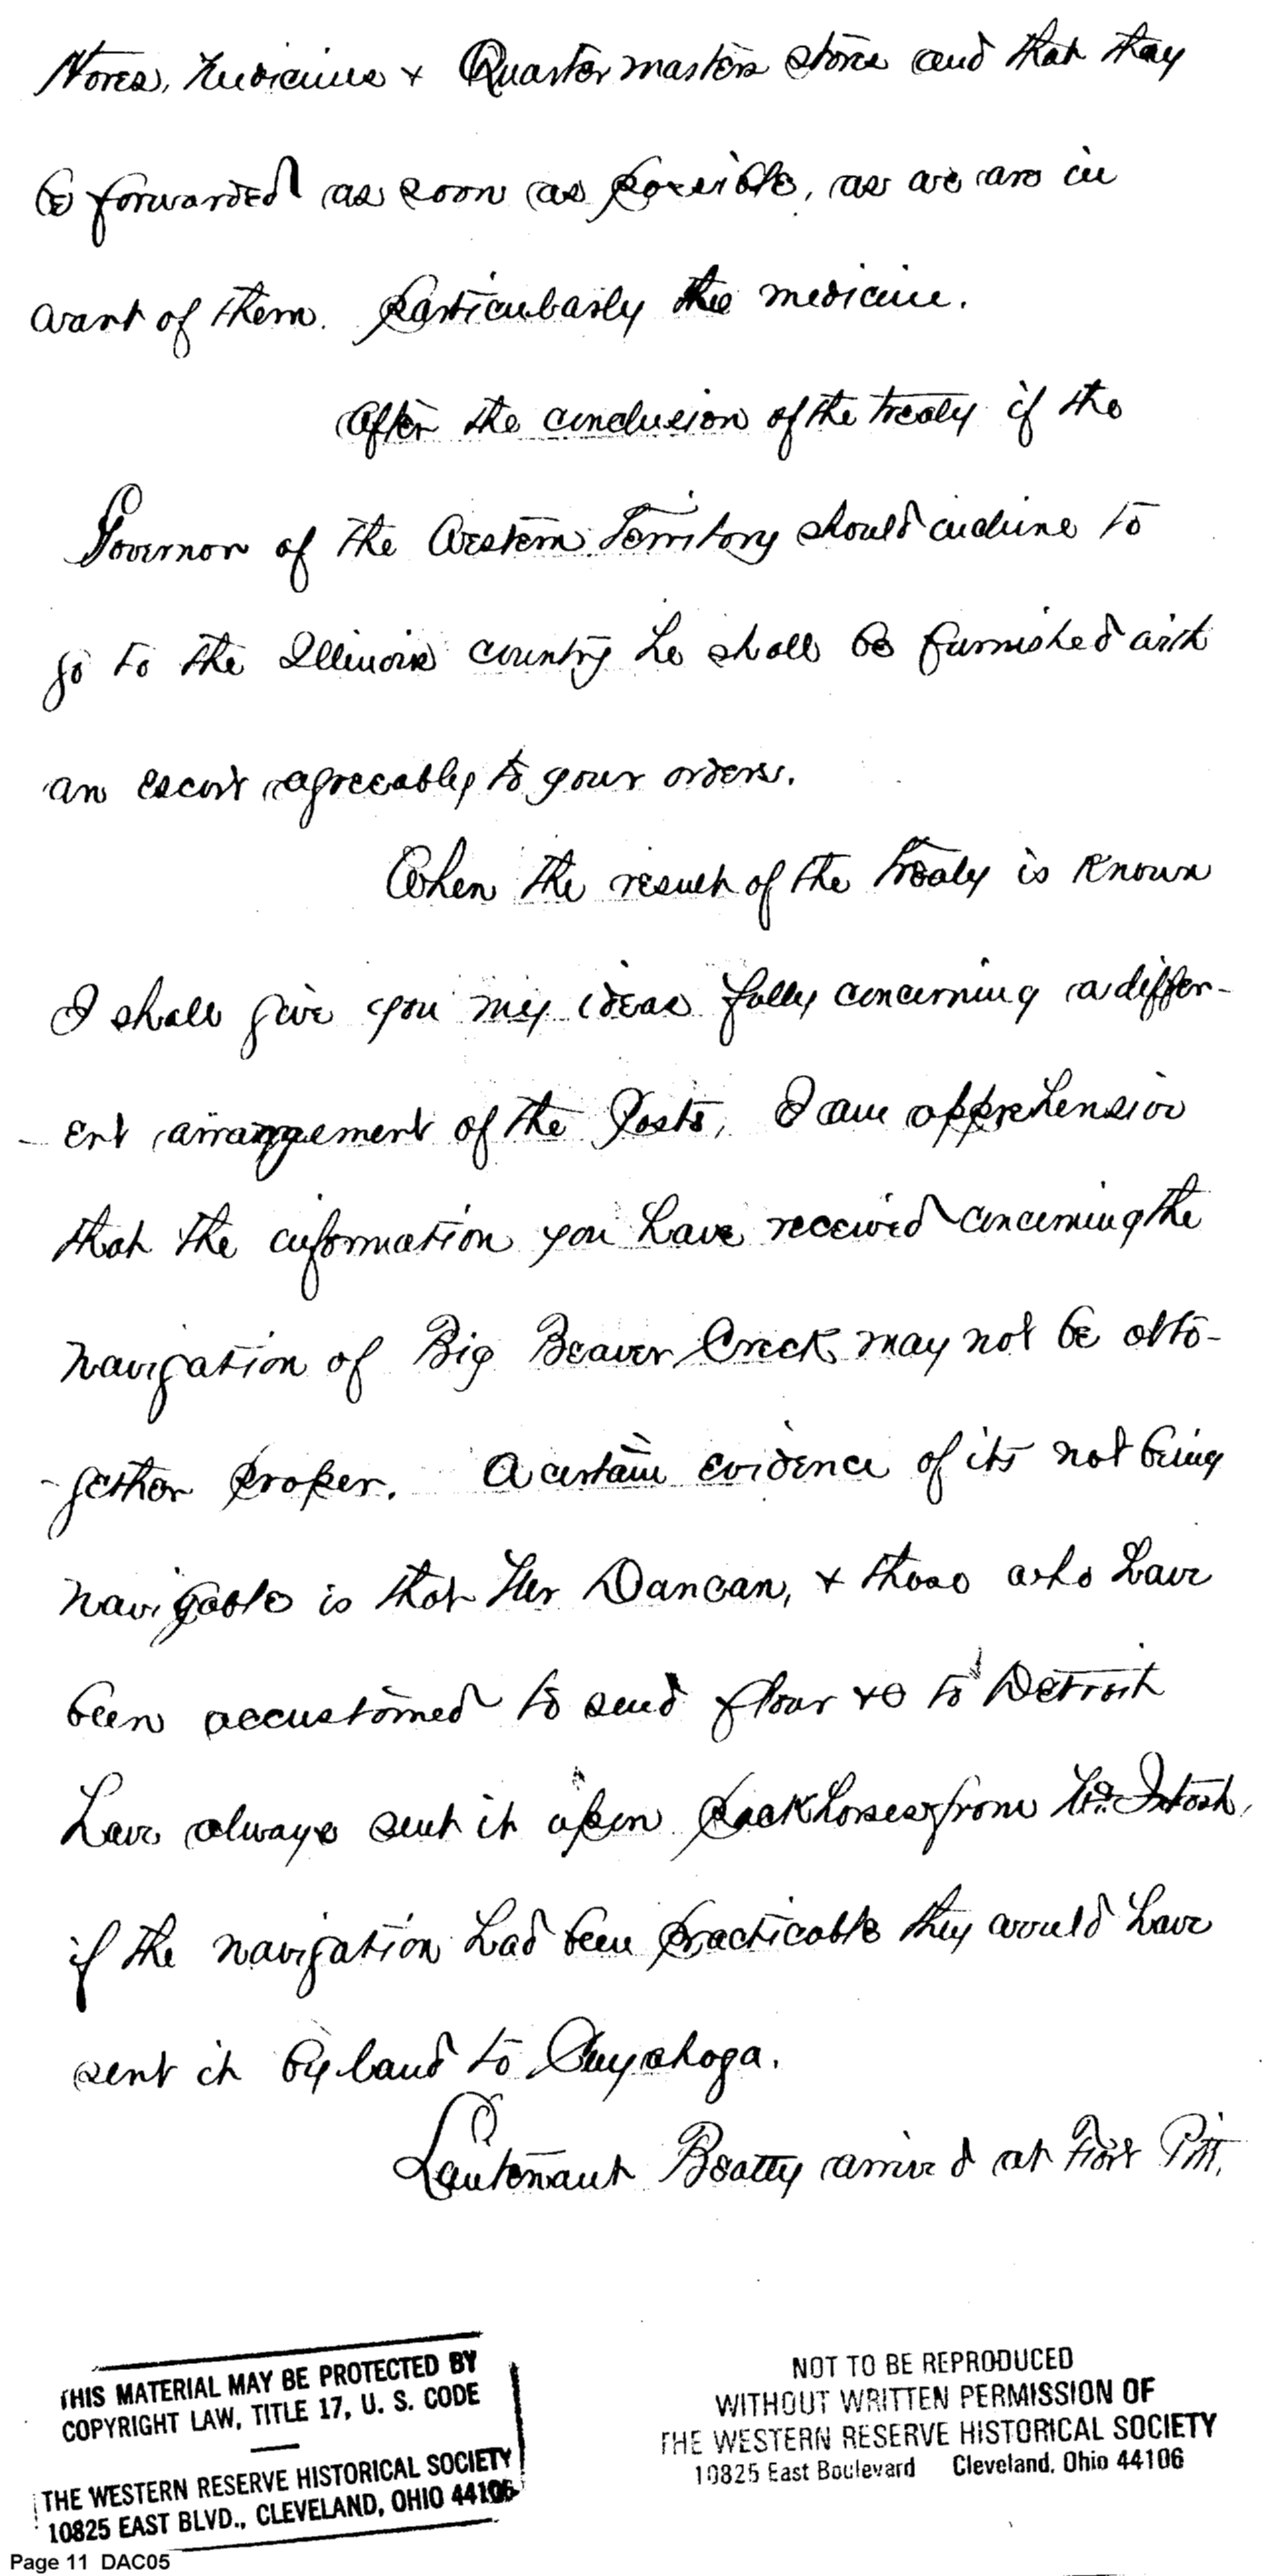 Stores, Medicine & Quartermasters stores and that they
be forwarded as soon as possible, as we are in
want of them. Particularly the medicine.
After the conclusion of the treaty if the
Governor of the Western Territory should incline to
go to the Illinois country he shall be furnished with
an escort agreeably to your orders.
When the result of the Treaty is known
I shall give you my ideas fully concerning a differ-
- ent arrangement of the Posts, I am apprehensive
that the information you have received concerning the
navigation of Big Beaver Creek may not be alto-
- gether proper. A certain evidence of its not being
navigable is that Mr Duncan, & those who have
been accustomed to send flour &c to Detroit
have always sent it upon packhorses from McIntosh,
if the navigation had been practicable they would have
sent it by land to Cuyahoga.
Lieutenant Beatty arrived at Fort Pitt,
THIS MATERIAL MAY BE PROTECTED BY
COPYRIGHT LAW, TITLE 17, U. S. CODE
THE WESTERN RESERVE HISTORICAL SOCIETY
10825 EAST BLVD., CLEVELAND, OHIO 44106
NOT TO BE REPRODUCED
WITHOUT WRITTEN PERMISSION OF
THE WESTERN RESERVE HISTORICAL SOCIETY
10825 East Boulevard Cleveland, Ohio 44106
Page 11 DAC05